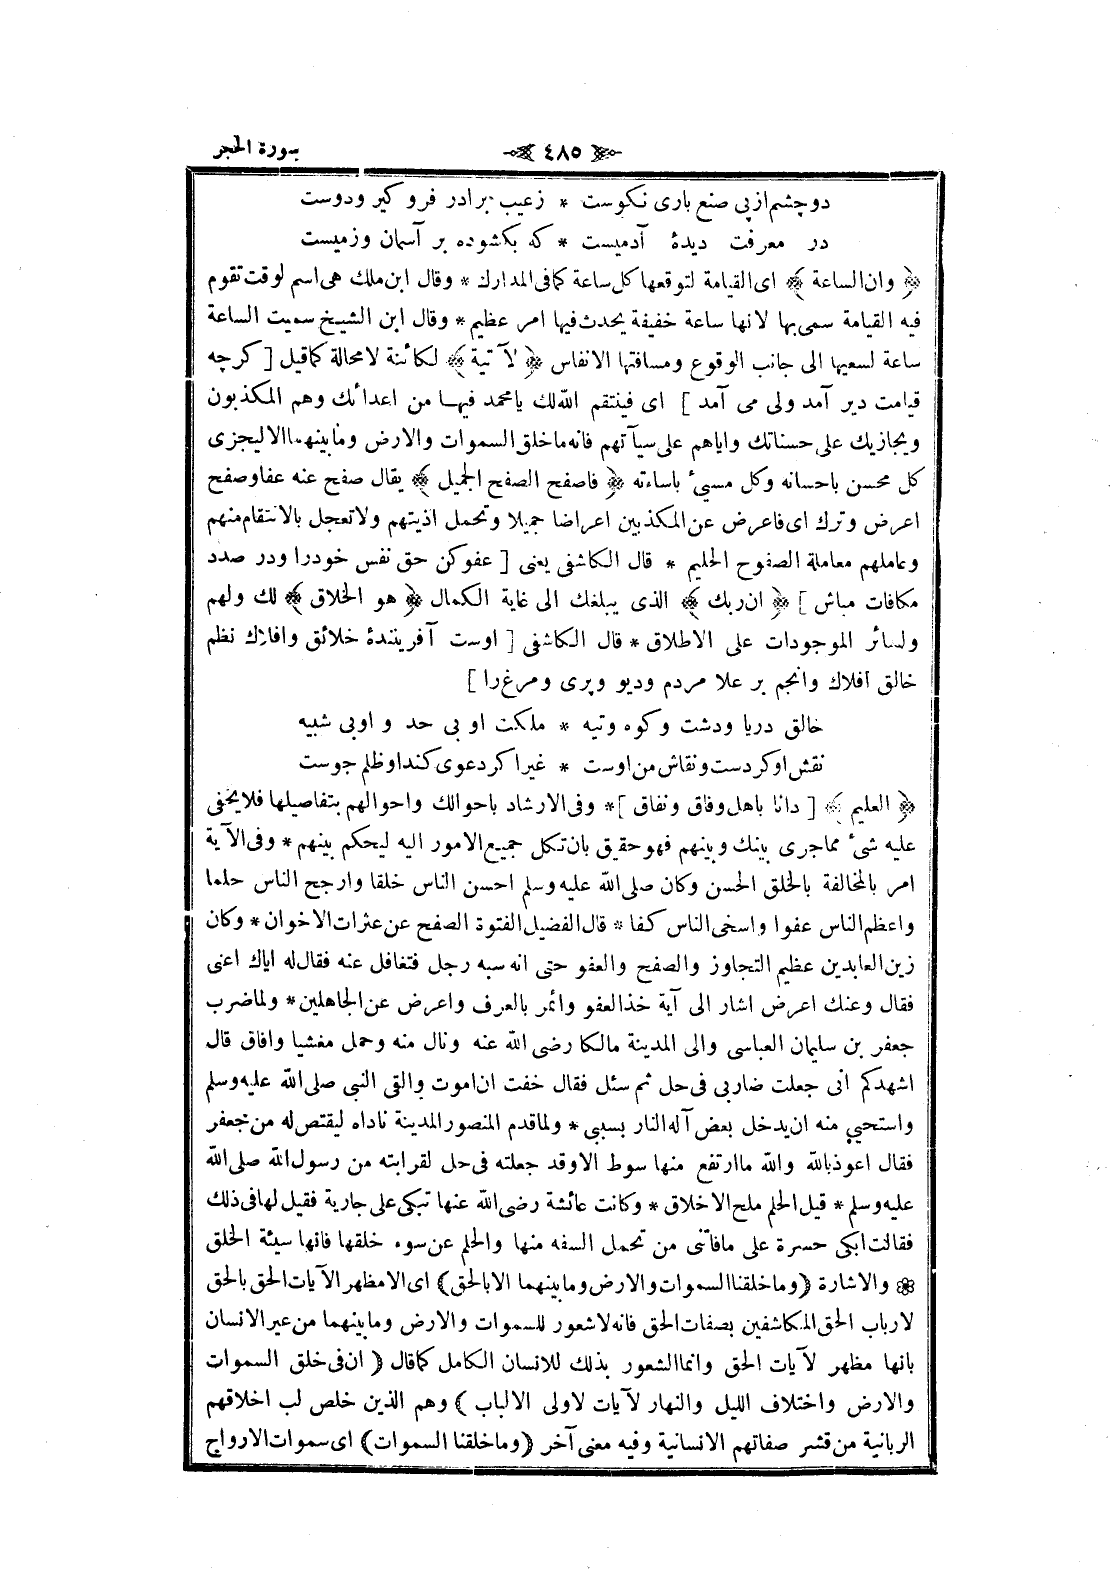 سورة الحجر
٤٨٥
دو چشم از پی صنع باری نکوست * زعیب برادر فرو کیر ودوست
در معرفت دیدهٔ آدمیست * که بکشوده بر آسمان وزمیست
﴿ وان الساعة ﴾ ای القیامة لتوقعها کل ساعة کما فی المدارك * وقال ابن ملك هی اسم لوقت تقوم
فیه القیامة سمی بها لانها ساعة خفیفة یحدث فیها امر عظیم * وقال ابن الشیخ سمیت الساعة
ساعة لسعیها الی جانب الوقوع ومسافتها الانفاس ﴿ لآتیة ﴾ لکائنة لا محالة کما قیل [ کرچه
قیامت دیر آمد ولی می آمد ] ای فینتقم الله لك یا محمد فیها من اعدائك وهم المکذبون
ویجازیك علی حسناتك وایاهم علی سیآتهم فانه ما خلق السموات والارض وما بینهما الا لیجزی
کل محسن باحسانه وکل مسیئ باساءته ﴿ فاصفح الصفح الجمیل ﴾ یقال صفح عنه عفا وصفح
اعرض وترك ای فاعرض عن المکذبین اعراضا جمیلا وتحمل اذیتهم ولا تعجل بالانتقام منهم
وعاملهم معاملة الصفوح الحلیم * قال الکاشفی یعنی [ عفو کن حق نفس خودرا ودر صدد
مکافات مباش ] ﴿ ان ربك ﴾ الذی یبلغك الی غایة الکمال ﴿ هو الخلاق ﴾ لك ولهم
ولسائر الموجودات علی الاطلاق * قال الکاشفی [ اوست آفرینندهٔ خلائق وافلاك نظم
خالق افلاك وانجم بر علا مردم ودیو وپری ومرغ را ]
خالق دریا ودشت وکوه وتیه * ملکت او بی حد و او بی شبیه
نقش او کردست ونقاش من اوست * غیر اکر دعوی کند او ظلم جوست
﴿ العلیم ﴾ [ دانا باهل وفاق ونفاق ] * وفی الارشاد باحوالك واحوالهم بتفاصیلها فلا یخفی
علیه شیٔ مما جری بینك وبینهم فهو حقیق بان تکل جمیع الامور الیه لیحکم بینهم * وفی الآیة
امر بالمخالقة بالخلق الحسن وکان صلی الله علیه وسلم احسن الناس خلقا وارجح الناس حلما
واعظم الناس عفوا واسخی الناس کفا * قال الفضیل الفتوة الصفح عن عثرات الاخوان * وکان
زین العابدین عظیم التجاوز والصفح والعفو حتی انه سبه رجل فتغافل عنه فقال له ایاك اعنی
فقال وعنك اعرض اشار الی آیة خذ العفو وائمر بالعرف واعرض عن الجاهلین * ولما ضرب
جعفر بن سلیمان العباسی والی المدینة مالکا رضی الله عنه ونال منه وحمل مغشیا وافاق قال
اشهدکم انی جعلت ضاربی فی حل ثم سئل فقال خفت ان اموت والقی النبی صلی الله علیه وسلم
واستحیی منه ان یدخل بعض آله النار بسببی * ولما قدم المنصور المدینة ناداه لیقتص له من جعفر
فقال اعوذ بالله والله ما ارتفع منها سوط الا وقد جعلته فی حل لقرابته من رسول الله صلی الله
علیه وسلم * قیل الحلم ملح الاخلاق * وکانت عائشة رضی الله عنها تبکی علی جاریة فقیل لها فی ذلك
فقالت ابکی حسرة علی ما فاتنی من تحمل السفه منها والحلم عن سوء خلقها فانها سیئة الخلق
❁ والاشارة (وما خلقنا السموات والارض وما بینهما الا بالحق) ای الا مظهر الآیات الحق بالحق
لارباب الحق المکاشفین بصفات الحق فانه لا شعور للسموات والارض وما بینهما من غیر الانسان
بانها مظهر لآیات الحق وانما الشعور بذلك للانسان الکامل کما قال ( ان فی خلق السموات
والارض واختلاف اللیل والنهار لآیات لاولی الالباب ) وهم الذین خلص لب اخلاقهم
الربانیة من قشر صفاتهم الانسانیة وفیه معنی آخر (وما خلقنا السموات) ای سموات الارواح